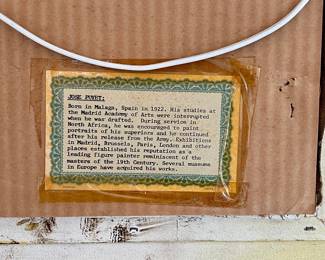 JOSE PUYET:
Born in Malaga, Spain in 1922. His studies at
the Madrid Academy of Arts were interrupted
when he was drafted. During service in
North Africa, he was encouraged to paint
portraits of his superiors and he continued
after his release from the Army. Exhibitions
in Madrid, Brussels, Paris, London and other
places established his reputation as a
leading figure painter reminiscent of the
masters of the 19th Century. Several museums
in Europe have acquired his works.